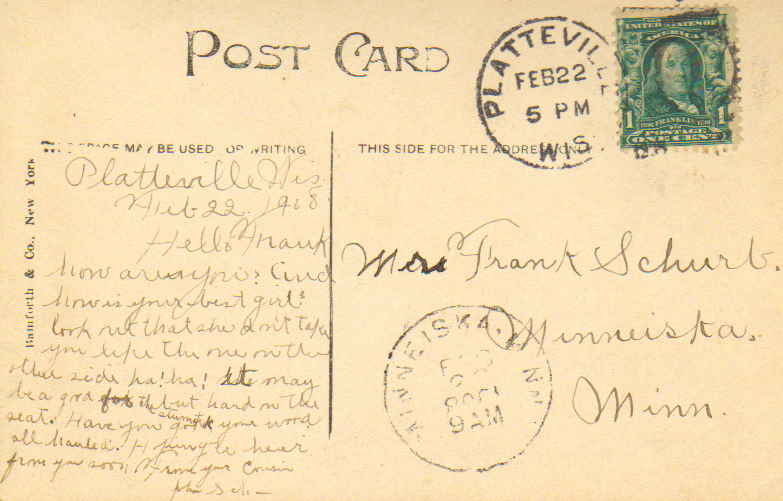 POST CARD
PLATTEVILLE
FEB 22
5 PM
WIS.
UNITED STATES OF AMERICA
1 FRANKLIN 1
POSTAGE
ONE CENT
SPACE MAY BE USED WRITING
THIS SIDE FOR THE ADDRESS ONLY
Bamforth & Co., New York
Platteville Wis
Feb 22. 1908
Hello Frank
how are you? And
how is your best girl?
look out that she don't take
you like the one on the
other side ha! ha! may
be a good but hard on the
seat. Have you got your wood
all hauled. Hoping to hear
from you soon From your Cousin
Sch-
Frank Schurb.
Minneiska.
Minn.
MINNEISKA, MINN
9 AM